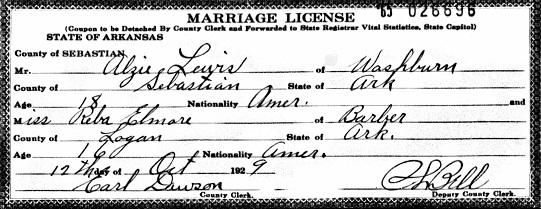 MARRIAGE LICENSE
(Coupon to be Detached By County Clerk and Forwarded to State Registrar Vital Statistics, State Capitol)
STATE OF ARKANSAS
County of SEBASTIAN
Mr. Alzie Lewis of Washburn
County of Sebastian State of Ark
Age 18 Nationality Amer. and
Miss Reba Elmore of Barber
County of Logan State of Ark.
Age 16 Nationality Amer.
12 th day of Oct 1929
Carl Dawson
County Clerk. Deputy County Clerk.